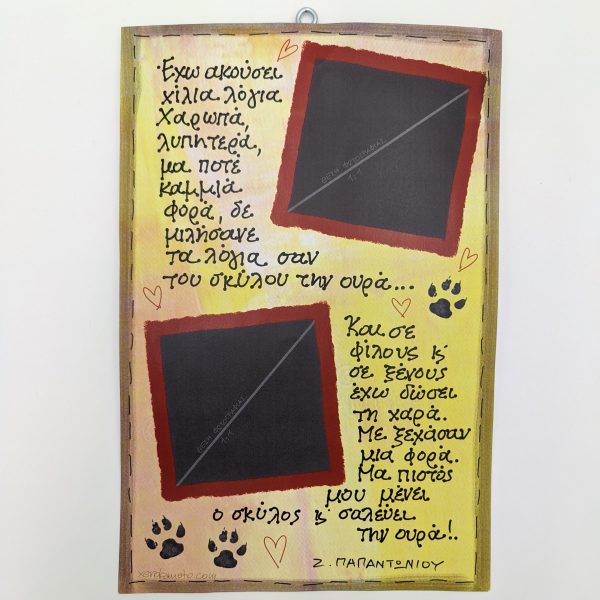 Έχω ακούσει
χίλια λόγια
Χαρωπά,
λυπητερά,
μα ποτέ
καμμιά
φορά, δε
μιλήσανε
τα λόγια σαν
του σκύλου την ουρά...
ΘΕΣΗ ΦΩΤΟΓΡΑΦΙΑΣ
1:1
Και σε
φίλους κ'
σε ξένους
έχω δώσει
τη χαρά.
Με ξεχάσαν
μια φορά.
Μα πιστός
μου μένει
ο σκύλος κ' σαλεύει
την ουρά!.
ΘΕΣΗ ΦΩΤΟΓΡΑΦΙΑΣ
1:1
Ζ. ΠΑΠΑΝΤΩΝΙΟΥ